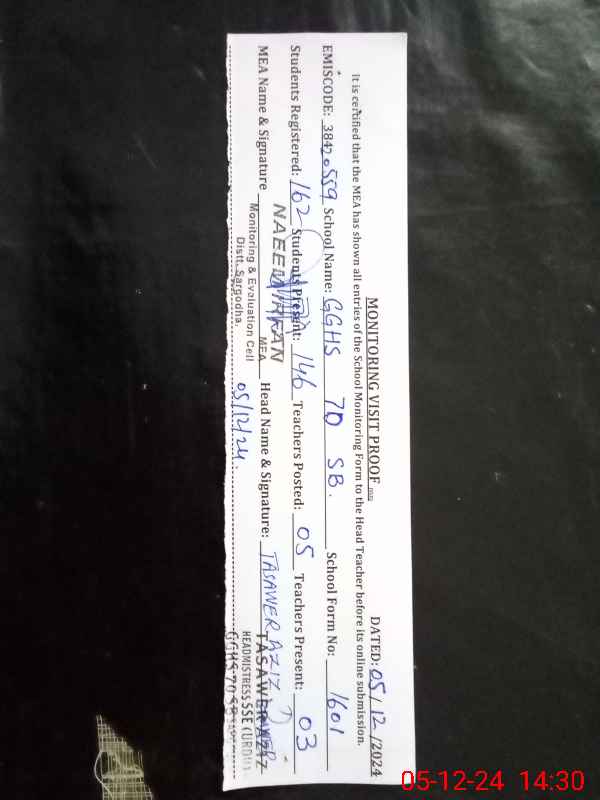 MONITORING VISIT PROOF
DATED: 05/12/2024
It is certified that the MEA has shown all entries of the School Monitoring Form to the Head Teacher before its online submission.
EMISCODE: 38420559 School Name: GGHS 70 SB. School Form No: 1601
Students Registered: 162 Students Present: 146 Teachers Posted: 05 Teachers Present: 03
MEA Name & Signature NAEEM IRFAN MEA Head Name & Signature: TASAWER AZIZ
Monitoring & Evaluation Cell
Distt. Sargodha.
05/12/24
TASAWER AZIZ
HEADMISTRESS SSE (URDU)
GGHS 70 SB
05-12-24 14:30